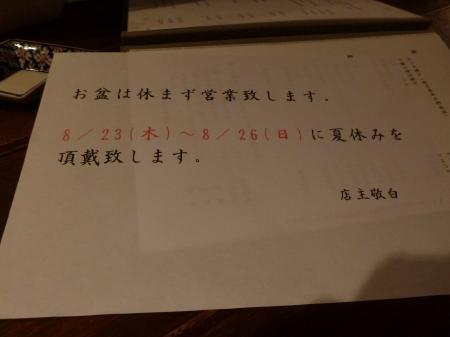 お盆は休まず営業致します。
8／23(木)～8／26(日)に夏休みを
頂戴致します。
店主敬白